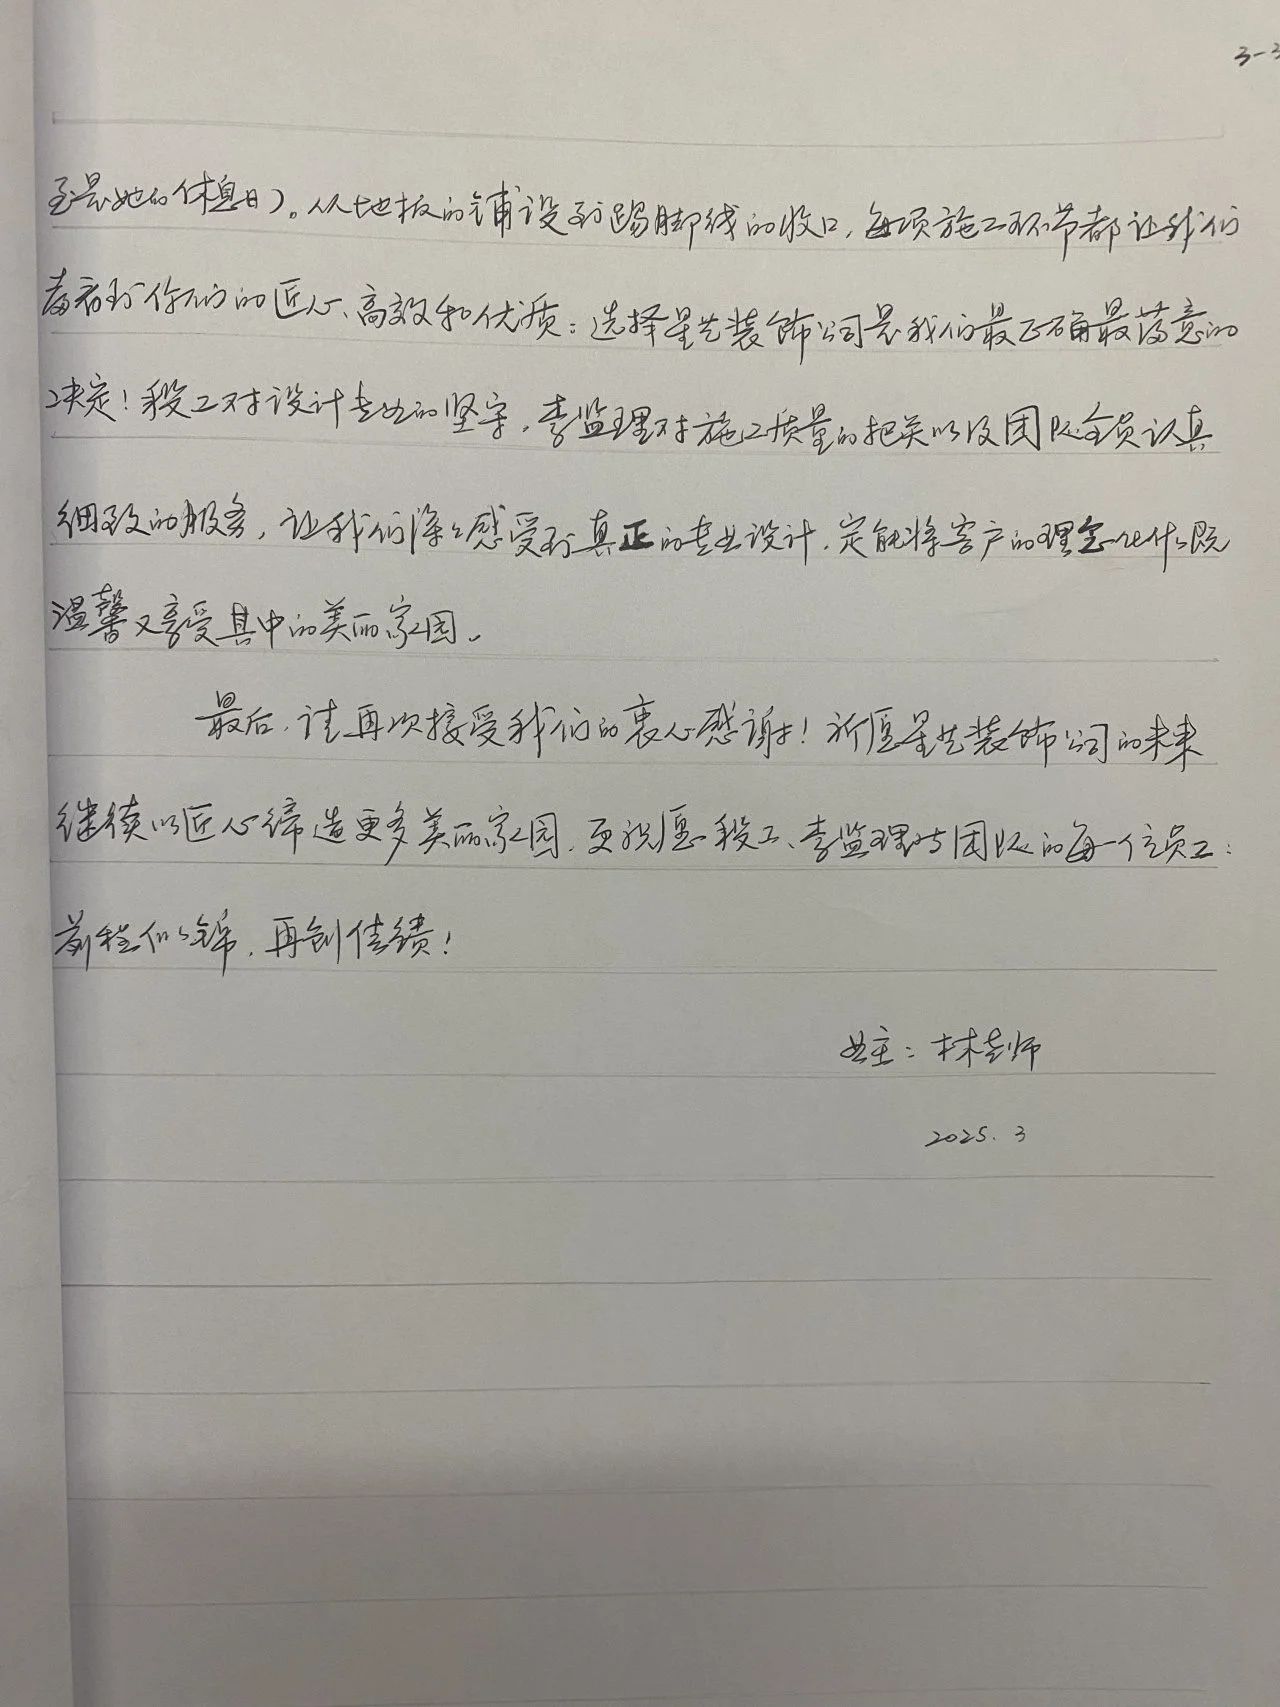 3-3
至是她的休息日）。从地板的铺设到踢脚线的收口，每项施工环节都让我们
都看到你们的匠心、高效和优质：选择星艺装饰公司是我们最正确最满意的
决定！段工对设计专业的坚守，李监理对施工质量的把关以及团队全员认真
细致的服务，让我们深深感受到真正的专业设计，定能将客户的理念化作既
温馨又享受其中的美丽家园。
最后，请再次接受我们的衷心感谢！祈愿星艺装饰公司的未来
继续以匠心缔造更多美丽家园，更祝愿段工、李监理与团队的每一位员工：
前程似锦，再创佳绩！
业主：林老师
2025.3